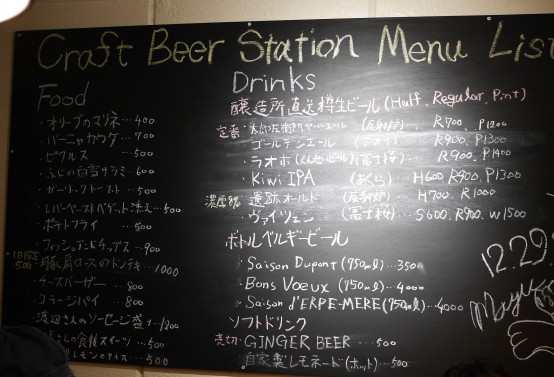 Craft Beer Station Menu List
Food
・オリーブのマリネ…400
・バーニャカウダ…700
・ピクルス…500
・ふじの白雪サラミ…600
・ガーリックトースト…500
・レバーペーストバゲット添え…500
・ポテトフライ…500
・フィッシュアンドチップス…900
豚肩ロースのトンテキ…1000
・チーズバーガー…800
・コテージパイ…800
渡辺さんのソーセージ盛り…1200
さんの食後スイーツ…500
レモンのアイス…500
Drinks
醸造所直送樽生ビール (Half, Regular, Pint)
定番・太郎左衛門ペールエール R700, P1200
・ゴールデンエール R900, P1300
・ラオホ (富士桜) R900, P1400
・Kiwi IPA (あくら)…H600, R900, P1300
濃厚 ・遺跡オールド (反射炉)…H700, R1000
・ヴァイツェン (富士桜)…S600, R900, W1500
ボトルベルギービール
・Saison Dupont (750ml)…350
・Bons Voeux (750ml)…4000
・Saison d'ERPE-MERE (750ml)…4000
ソフトドリンク
売切・GINGER BEER…500
・自家製レモネード(ホット)…500
12.29